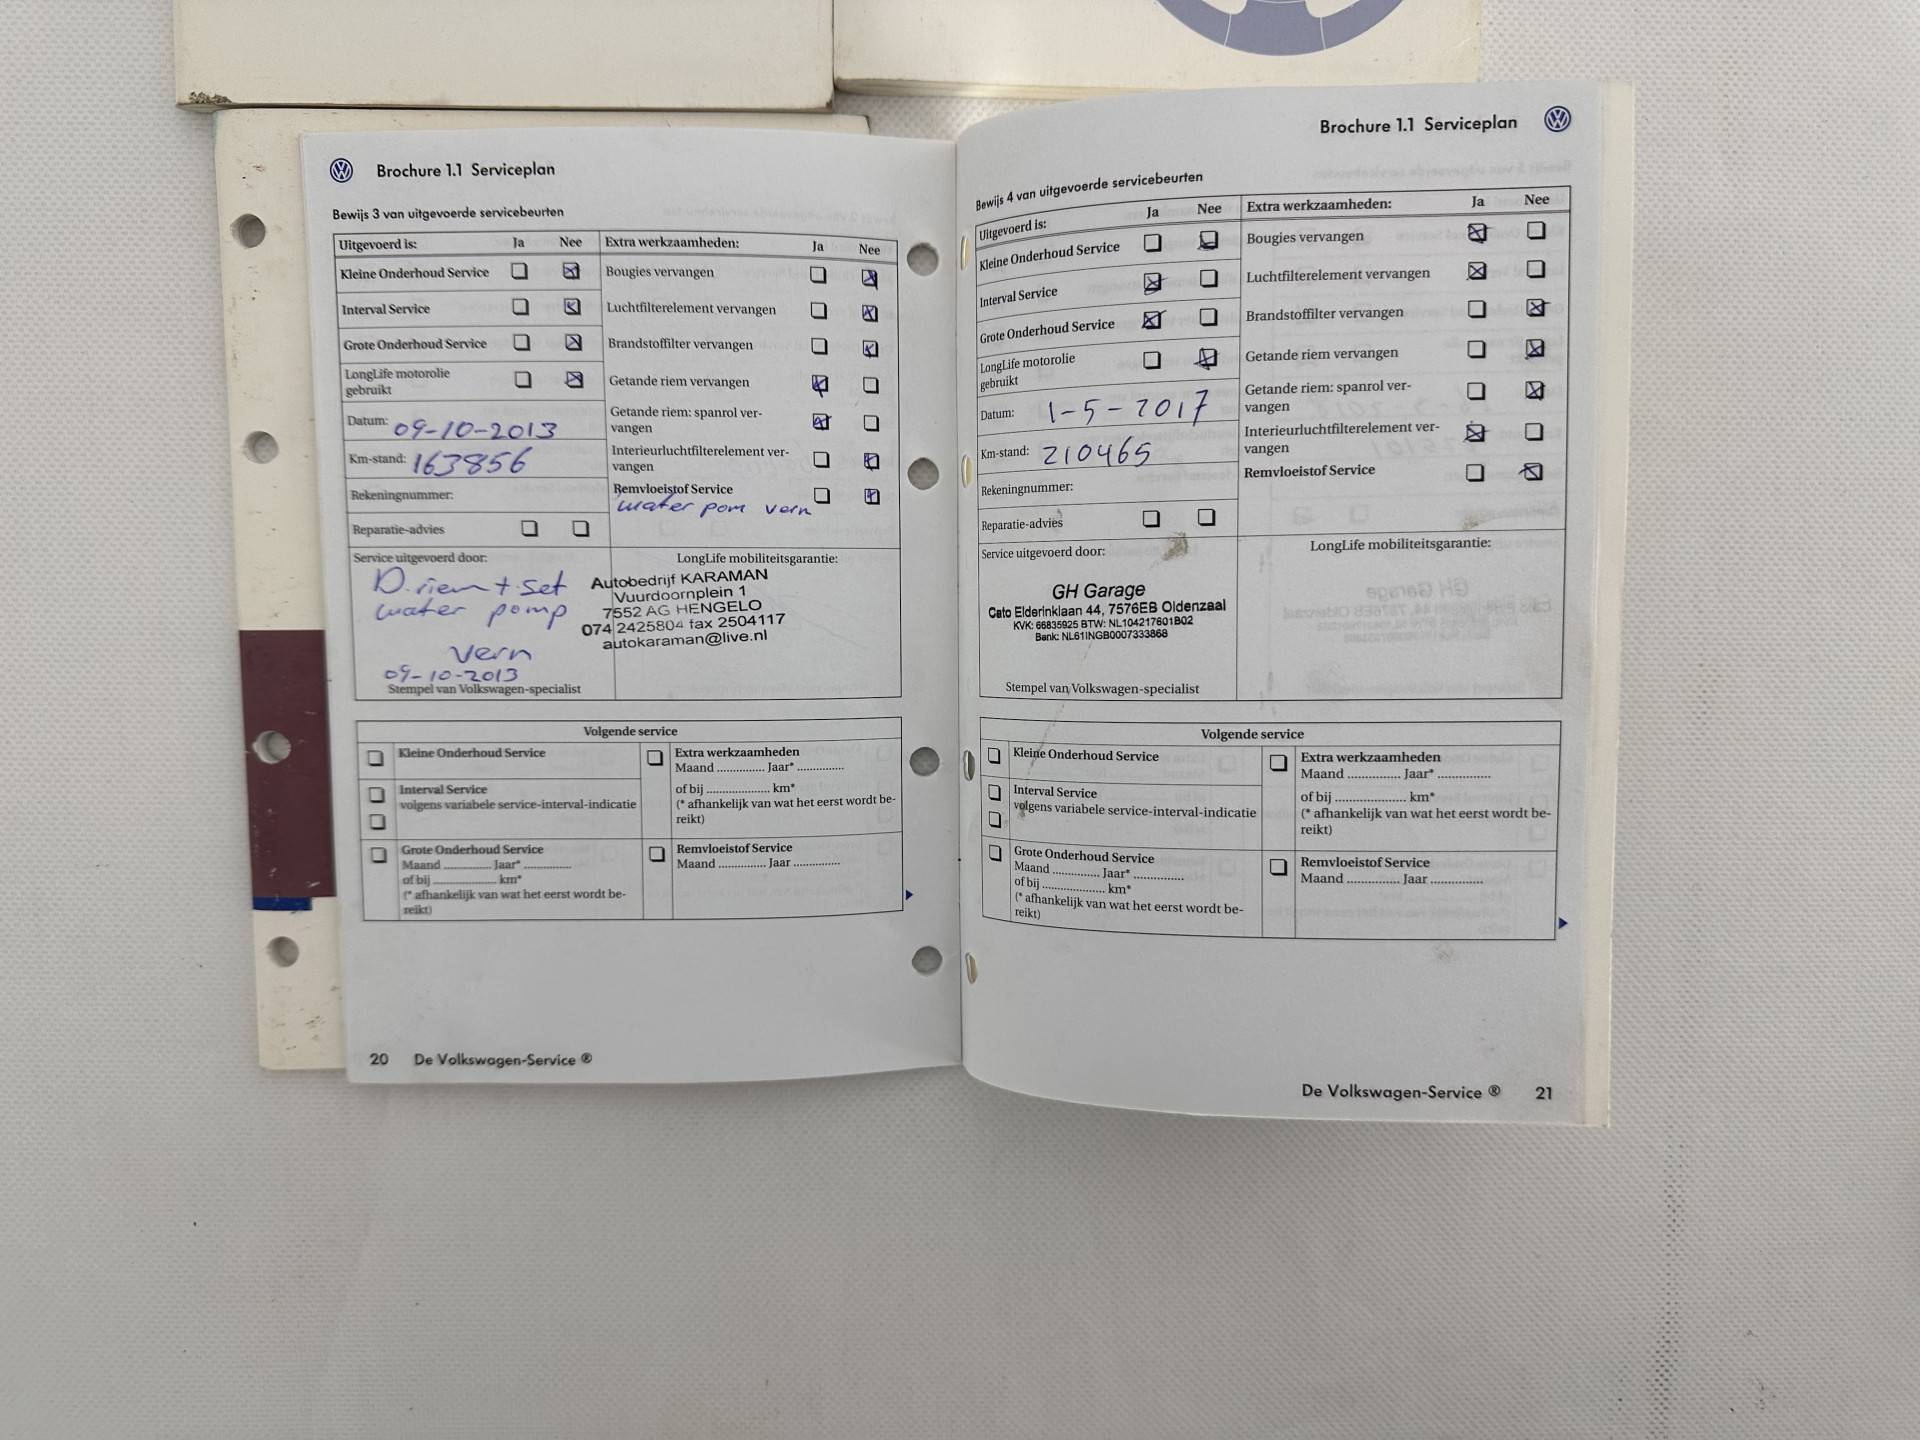 Brochure 1.1 Serviceplan
Bewijs 3 van uitgevoerde servicebeurten
Uitgevoerd is: Ja Nee
Kleine Onderhoud Service
Interval Service
Grote Onderhoud Service
LongLife motorolie
gebruikt
Datum: 09-10-2013
Km-stand: 163856
Rekeningnummer:
Reparatie-advies
Extra werkzaamheden: Ja Nee
Bougies vervangen
Luchtfilterelement vervangen
Brandstoffilter vervangen
Getande riem vervangen
Getande riem: spanrol ver-
vangen
Interieurluchtfilterelement ver-
vangen
Remvloeistof Service
water pom vern
Service uitgevoerd door:
D.riem + set
water pomp
vern
09-10-2013
Stempel van Volkswagen-specialist
LongLife mobiliteitsgarantie:
Autobedrijf KARAMAN
Vuurdoornplein 1
7552 AG HENGELO
074 2425804 fax 2504117
autokaraman@live.nl
Volgende service
Kleine Onderhoud Service
Interval Service
volgens variabele service-interval-indicatie
Grote Onderhoud Service
Maand .............. Jaar* ..............
of bij .................... km*
(* afhankelijk van wat het eerst wordt be-
reikt)
Extra werkzaamheden
Maand .............. Jaar* ..............
of bij .................... km*
(* afhankelijk van wat het eerst wordt be-
reikt)
Remvloeistof Service
Maand .............. Jaar ..............
20 De Volkswagen-Service ®
Brochure 1.1 Serviceplan
Bewijs 4 van uitgevoerde servicebeurten
Uitgevoerd is: Ja Nee
Kleine Onderhoud Service
Interval Service
Grote Onderhoud Service
LongLife motorolie
gebruikt
Datum: 1-5-2017
Km-stand: 210465
Rekeningnummer:
Reparatie-advies
Extra werkzaamheden: Ja Nee
Bougies vervangen
Luchtfilterelement vervangen
Brandstoffilter vervangen
Getande riem vervangen
Getande riem: spanrol ver-
vangen
Interieurluchtfilterelement ver-
vangen
Remvloeistof Service
Service uitgevoerd door:
GH Garage
Cato Elderinklaan 44, 7576EB Oldenzaal
KVK: 66835925 BTW: NL104217601B02
Bank: NL61INGB0007333868
Stempel van Volkswagen-specialist
LongLife mobiliteitsgarantie:
Volgende service
Kleine Onderhoud Service
Interval Service
volgens variabele service-interval-indicatie
Grote Onderhoud Service
Maand .............. Jaar* ..............
of bij .................... km*
(* afhankelijk van wat het eerst wordt be-
reikt)
Extra werkzaamheden
Maand .............. Jaar* ..............
of bij .................... km*
(* afhankelijk van wat het eerst wordt be-
reikt)
Remvloeistof Service
Maand .............. Jaar ..............
De Volkswagen-Service ® 21